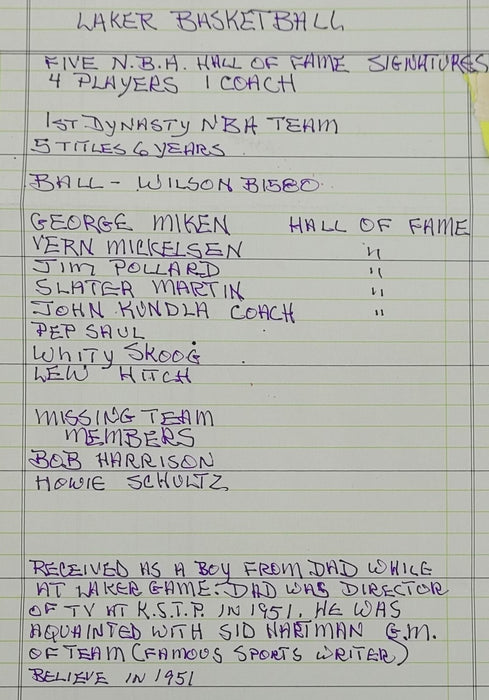 LAKER BASKETBALL
FIVE N.B.A. HALL OF FAME SIGNATURES
4 PLAYERS 1 COACH
1ST DYNASTY NBA TEAM
5 TITLES 6 YEARS
BALL - WILSON B1580
GEORGE MIKEN HALL OF FAME
VERN MICKELSEN "
JIM POLLARD "
SLATER MARTIN "
JOHN KUNDLA COACH "
PEP SAUL
WHITY SKOOG
LEW HITCH
MISSING TEAM
MEMBERS
BOB HARRISON
HOWIE SCHULTZ
RECEIVED AS A BOY FROM DAD WHILE
AT LAKER GAME. DAD WAS DIRECTOR
OF TV AT K.S.T.P. IN 1951. HE WAS
AQUAINTED WITH SID HARTMAN G.M.
OF TEAM (FAMOUS SPORTS WRITER)
BELIEVE IN 1951